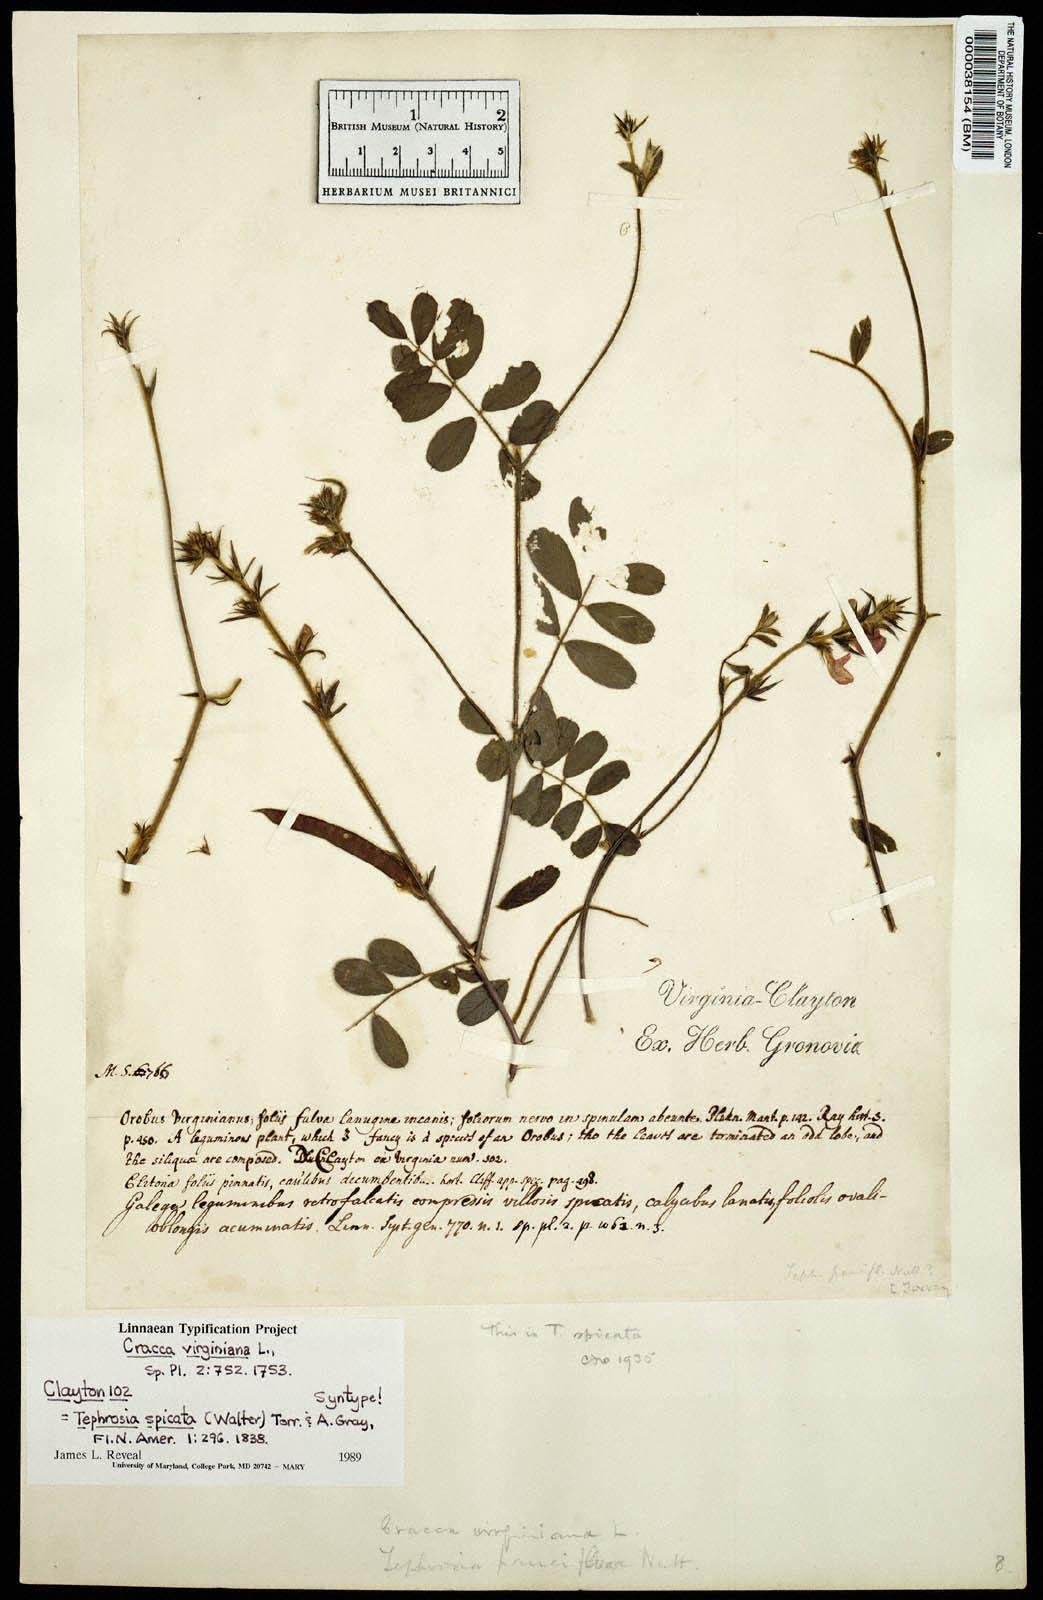 THE NATURAL HISTORY MUSEUM, LONDON
DEPARTMENT OF BOTANY
000038154 (BM)
1 2
BRITISH MUSEUM (NATURAL HISTORY)
1 2 3 4 5
HERBARIUM MUSEI BRITANNICI
Virginia-Clayton
Ex. Herb. Gronovii
M. S.
Orobus Virginianus; foliis fulva lanugine incanis; foliorum nervo in spinulam abeunte. Plukn. Mant. p. 142. Ray hist. 3.
p. 450. A leguminous plant, which I fancy is a species of an Orobus; tho the leaves are terminated an odd lobe, and
the siliquæ are composed. Clayton ex Virginia num. 102.
Clitoria foliis pinnatis, caulibus decumbentib.. hort. Cliff. app. pag. 498.
Galega leguminibus retrofalcatis compressis villosis spicatis, calycibus lanatis, foliolis ovali-
oblongis acuminatis. Linn. Syst. gen. 770. n. 1. sp. pl. 2. p. 1062. n. 3.
Teph. paucifl. Nutt?
This is T. spicata
1935
Linnaean Typification Project
Cracca virginiana L.,
Sp. Pl. 2:752. 1753.
Clayton 102
Syntype!
= Tephrosia spicata (Walter) Torr. & A. Gray,
Fl. N. Amer. 1:296. 1838.
James L. Reveal 1989
University of Maryland, College Park, MD 20742 – MARY
Cracca virginiana L.
Tephrosia pauciflora Nutt.
8.